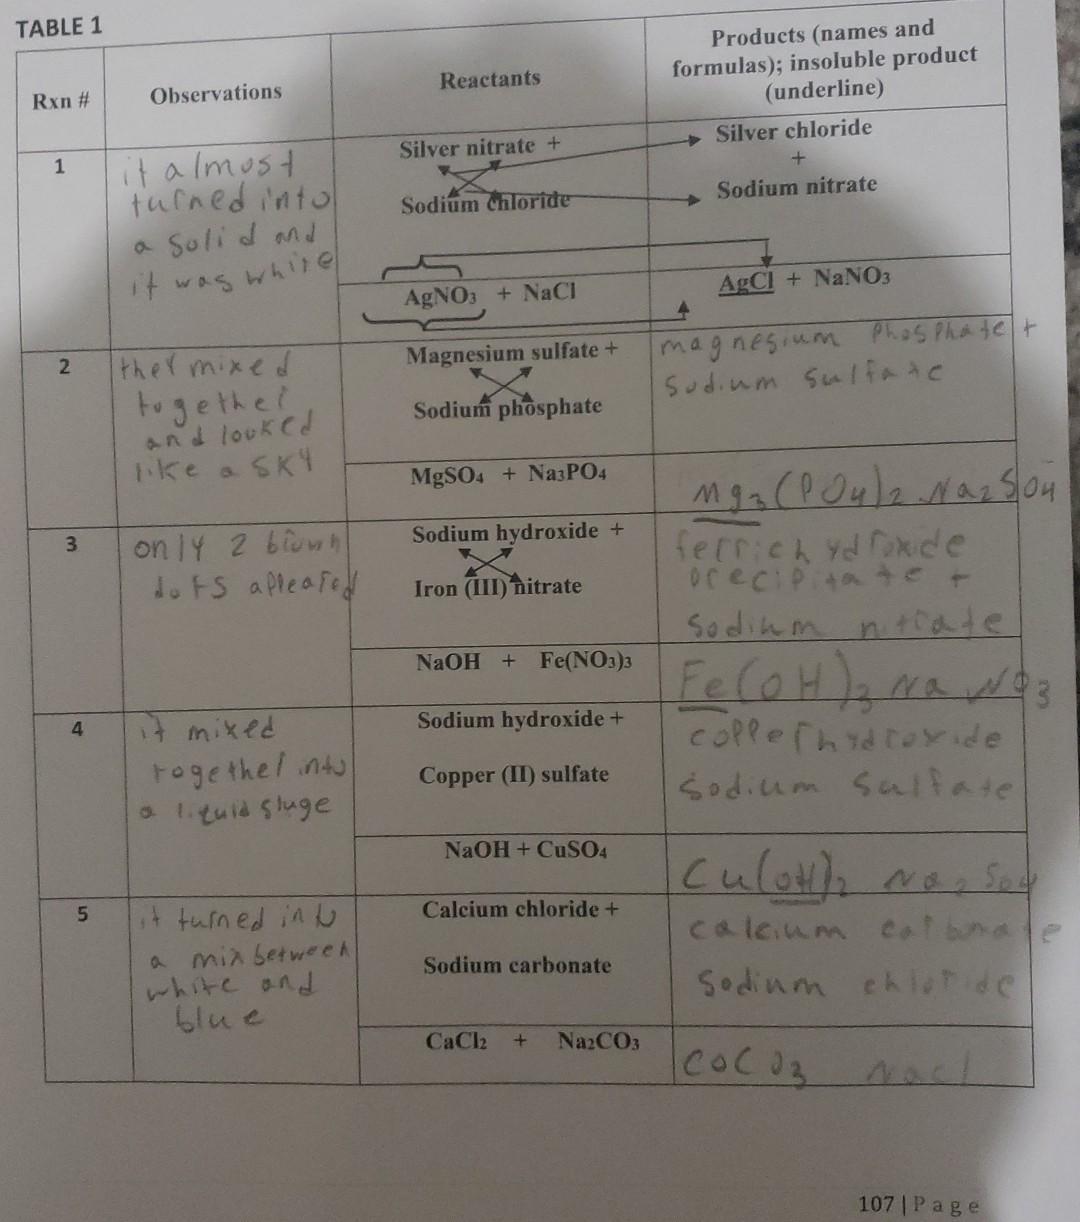 TABLE 1
Rxn #
Observations
Reactants
Products (names and
formulas); insoluble product
(underline)
1
it almost
turned into
a solid and
it was white
Silver nitrate +
Sodium chloride
Silver chloride
+
Sodium nitrate
AgNO₃ + NaCl
AgCl + NaNO₃
2
they mixed
together
and looked
like a sky
Magnesium sulfate +
Sodium phosphate
magnesium phosphate +
sodium sulfate
MgSO₄ + Na₃PO₄
Mg₃(PO₄)₂ Na₂SO₄
3
only 2 brown
dots appeared
Sodium hydroxide +
Iron (III) nitrate
ferric hydroxide
precipitate +
sodium nitrate
NaOH + Fe(NO₃)₃
Fe(OH)₃ NaNO₃
4
it mixed
together into
a liquid sluge
Sodium hydroxide +
Copper (II) sulfate
copper hydroxide
sodium sulfate
NaOH + CuSO₄
Cu(OH)₂ Na₂SO₄
5
it turned into
a mix between
white and
blue
Calcium chloride +
Sodium carbonate
calcium carbonate
sodium chloride
CaCl₂ + Na₂CO₃
CaCO₃ NaCl
107 | Page